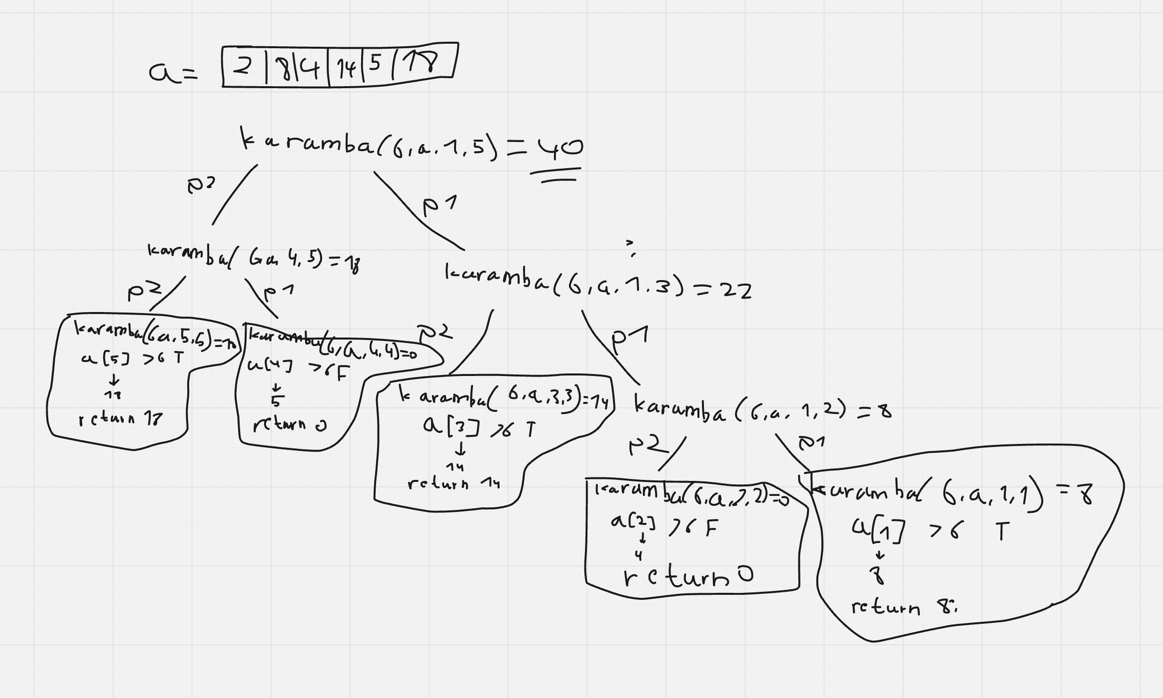 a= 2 | 8 | 4 | 14 | 5 | 18
karamba(6,a.1,5) = 40
p2
p1
karamba( 6a, 4,5) = 18
karamba(6,a.1.3) = 22
p2
p1
p2
p1
karamba(6a,5,5)=18
a[5] >6 T
↓
18
return 18
karamba(6,a,4,4)=0
a[4] >6 F
↓
5
return 0
karamba( 6,a,3,3)=14
a[3] >6 T
↓
14
return 14
karamba (6,a, 1,2) = 8
p2
p1
karamba(6,a,2,2)=0
a[2] >6 F
↓
4
return 0
karamba( 6,a,1,1) = 8
a[1] >6 T
↓
8
return 8;